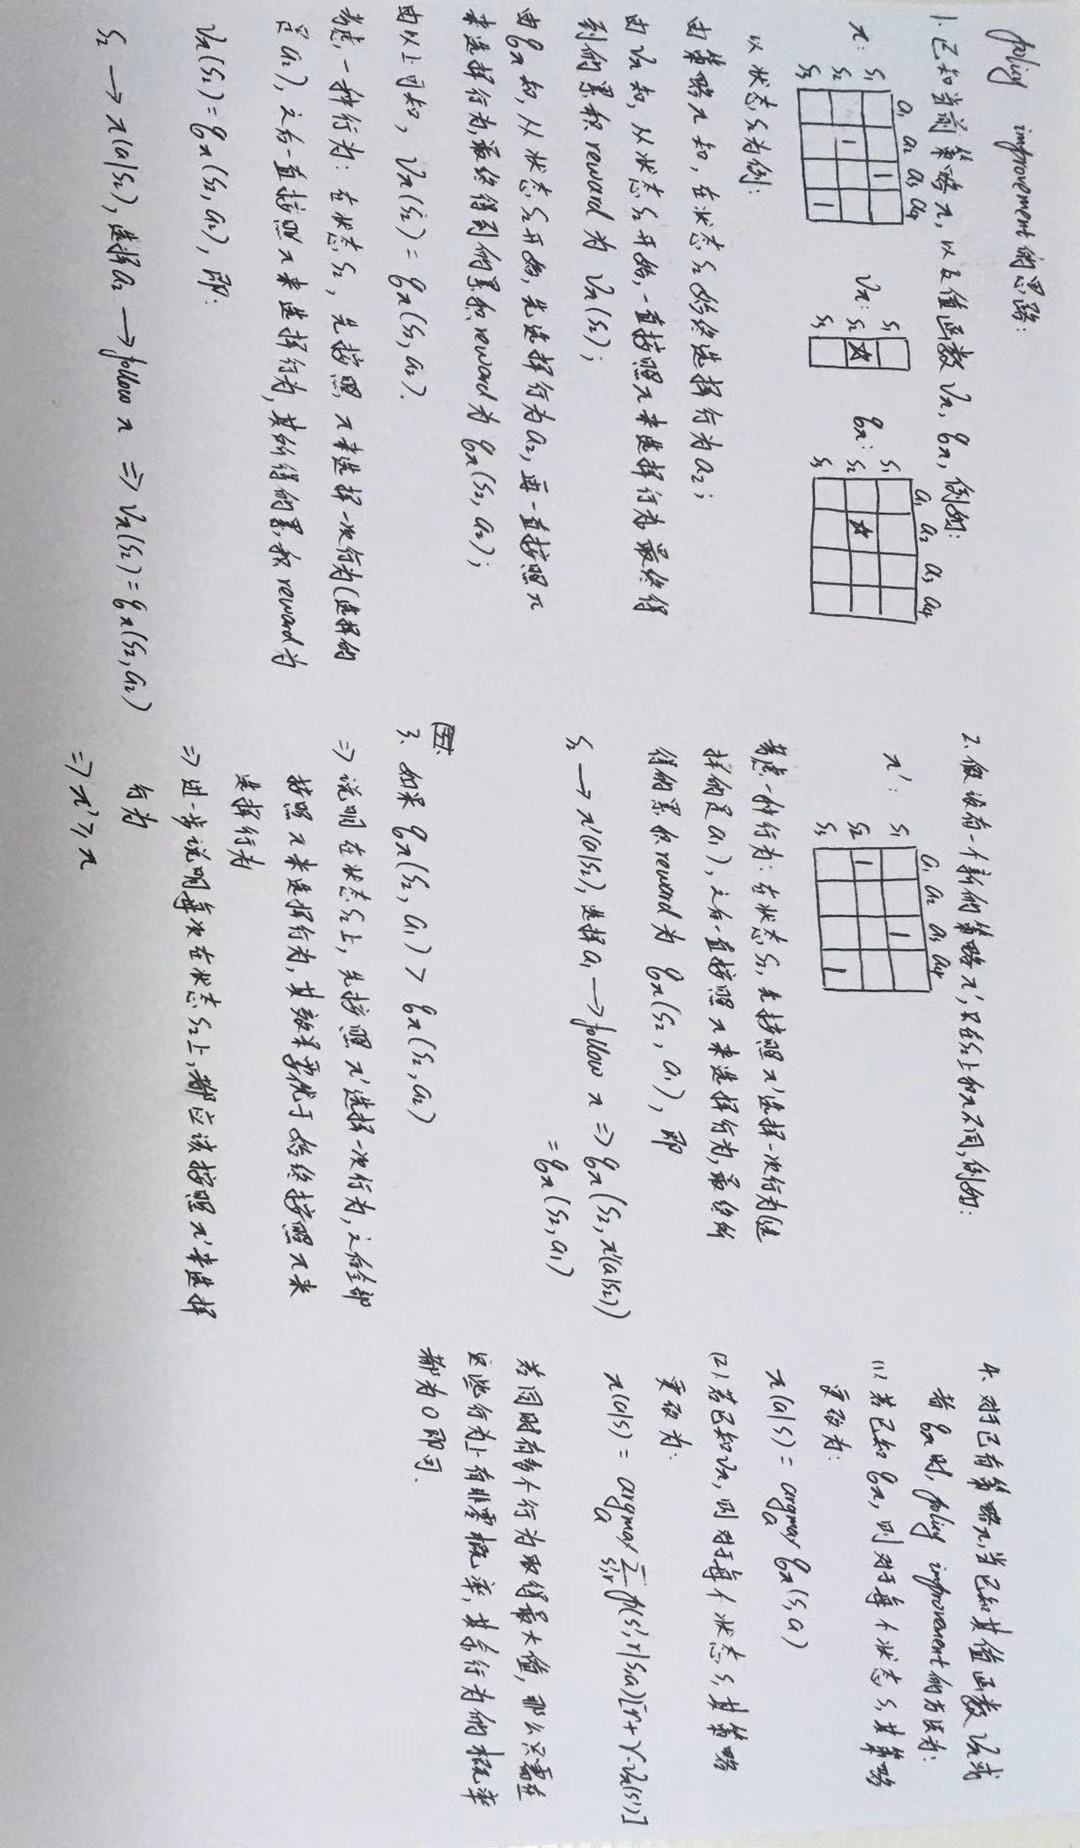 policy improvement的思路:
1. 已知当前策略π, 以及值函数 vπ, qπ, 例如:
a1 a2 a3 a4
π: s1 1
s2 1
s3 1
vπ: s1
s2 ☆
s3
a1 a2 a3 a4
qπ: s1
s2 ☆
s3
以状态s2为例:
由策略π知, 在状态s2始终选择行为a2;
由vπ知, 从状态s2开始, 一直按照π来选择行为, 最终得
到的累积reward为 vπ(s2);
由qπ知, 从状态s2开始, 先选择行为a2, 再一直按照π
来选择行为, 最终得到的累积reward为 qπ(s2, a2);
由以上可知, vπ(s2) = qπ(s2, a2).
考虑一种行为: 在状态s2, 先按照π来选择一次行为(选择的
是a2), 之后一直按照π来选择行为, 其所得的累积reward为
vπ(s2) = qπ(s2, a2), 即:
s2 → π(a|s2), 选择a2 → follow π ⇒ vπ(s2) = qπ(s2, a2)
2. 假设有一个新的策略π', 只在s2上和π不同, 例如:
a1 a2 a3 a4
π': s1 1
s2 1
s3 1
考虑一种行为: 在状态s2, 先按照π'选择一次行为(选
择的是a1), 之后一直按照π来选择行为, 最终所
得的累积reward为 qπ(s2, a1), 即
s2 → π'(a|s2), 选择a1 → follow π ⇒ qπ(s2, π'(a|s2))
= qπ(s2, a1)
3. 如果 qπ(s2, a1) > qπ(s2, a2)
⇒ 说明在状态s2上, 先按照π'选择一次行为, 之后全部
按照π来选择行为, 其效果要优于始终按照π来
选择行为
⇒ 进一步说明每次在状态s2上, 都应该按照π'来选择
行为
⇒ π' ≥ π
4. 对于已有策略π, 当已知其值函数vπ或
者qπ时, policy improvement的方法为:
(1) 若已知qπ, 则对于每个状态s, 其策略
更改为:
π(a|s) = argmax_a qπ(s, a)
(2) 若已知vπ, 则对于每个状态s, 其策略
更改为:
π(a|s) = argmax_a Σ_{s',r} p(s', r|s, a)[r + γ·vπ(s')]
若同时有多个行为取得最大值, 那么只需在
这些行为上有非零概率, 其余行为的概率
都为0即可.